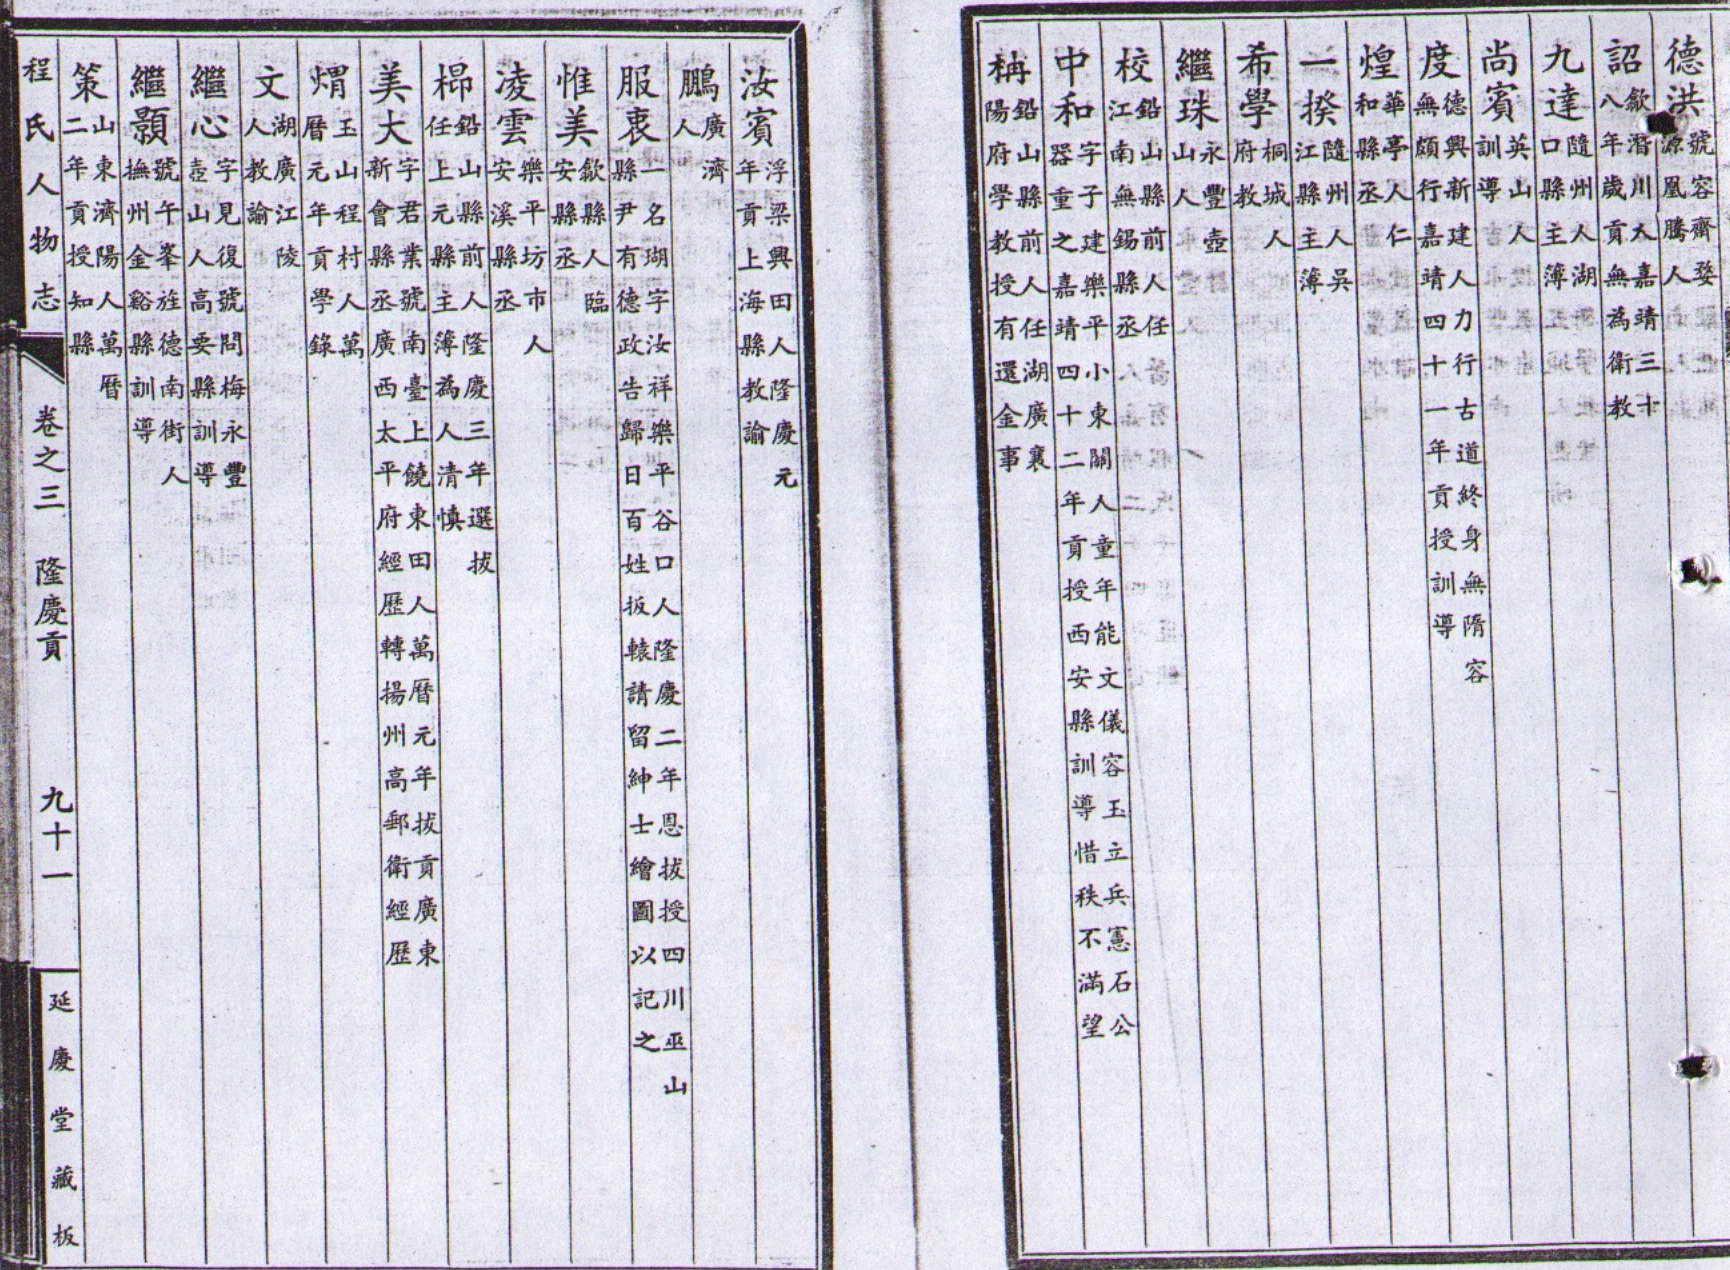 德洪號容齊婺源凰騰人
詔歙潛川人嘉靖三十八年歲貢無為衛教
九達隨州人湖口縣主簿
尚賓英山人訓導
度德興新建人力行古道終身無隋容無頗行嘉靖四十一年貢授訓導
煌華亭人仁和縣丞
一揆隨州人吳江縣主簿
希學桐城人府教
繼珠永豐壺山人
校鉛山縣前人任江南無錫縣丞
中和字子建樂平小東關人童年能文儀容玉立兵憲石公器重之嘉靖四十二年貢授西安縣訓導惜秩不滿望
稱鉛山縣前人任湖廣襄陽府學教授有還金事
汝賓浮梁興田人隆慶元年貢上海縣教諭
鵬廣濟人
服衷一名瑚字汝祥樂平谷口人隆慶二年恩拔授四川巫山縣尹有德政告歸日百姓扳轅請留紳士繪圖以記之
惟美歙縣人臨安縣丞
凌雲樂平坊市人安溪縣丞
檙鉛山縣前人隆慶三年選拔任上元縣主簿為人清慎
美大字君業號南臺上饒東田人萬曆元年拔貢廣東新會縣丞廣西太平府經歷轉揚州高郵衛經歷
焆玉山程村人萬曆元年貢學錄
文湖廣江陵人教諭
繼心字見復號問梅永豐壺山人高要縣訓導
繼顥號午峯旌德南街人撫州金谿縣訓導
策山東濟陽人萬曆二年貢授知縣
程氏人物志
卷之三 隆慶貢
九十一
延慶堂藏板